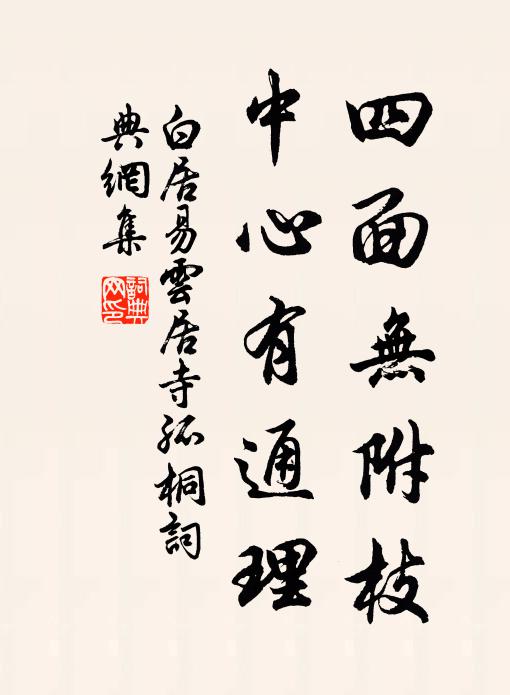 四面無附枝
中心有通理
白居易雲居寺孤桐詞
典網集
詞典
网印